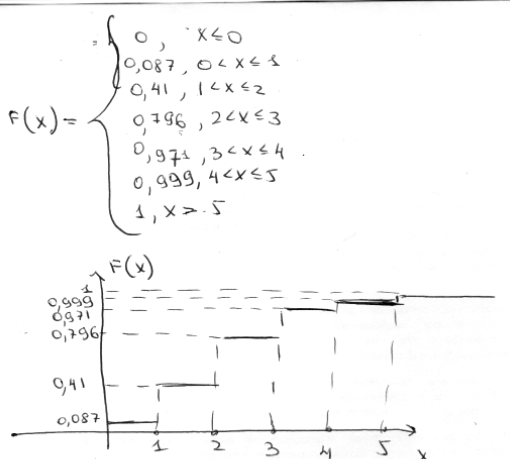 F(x) =
0, x≤0
0,087, 0<x≤1
0,41, 1<x≤2
0,796, 2<x≤3
0,971, 3<x≤4
0,999, 4<x≤5
1, x>5
F(x)
1
0,999
0,971
0,796
0,41
0,087
1 2 3 4 5 x